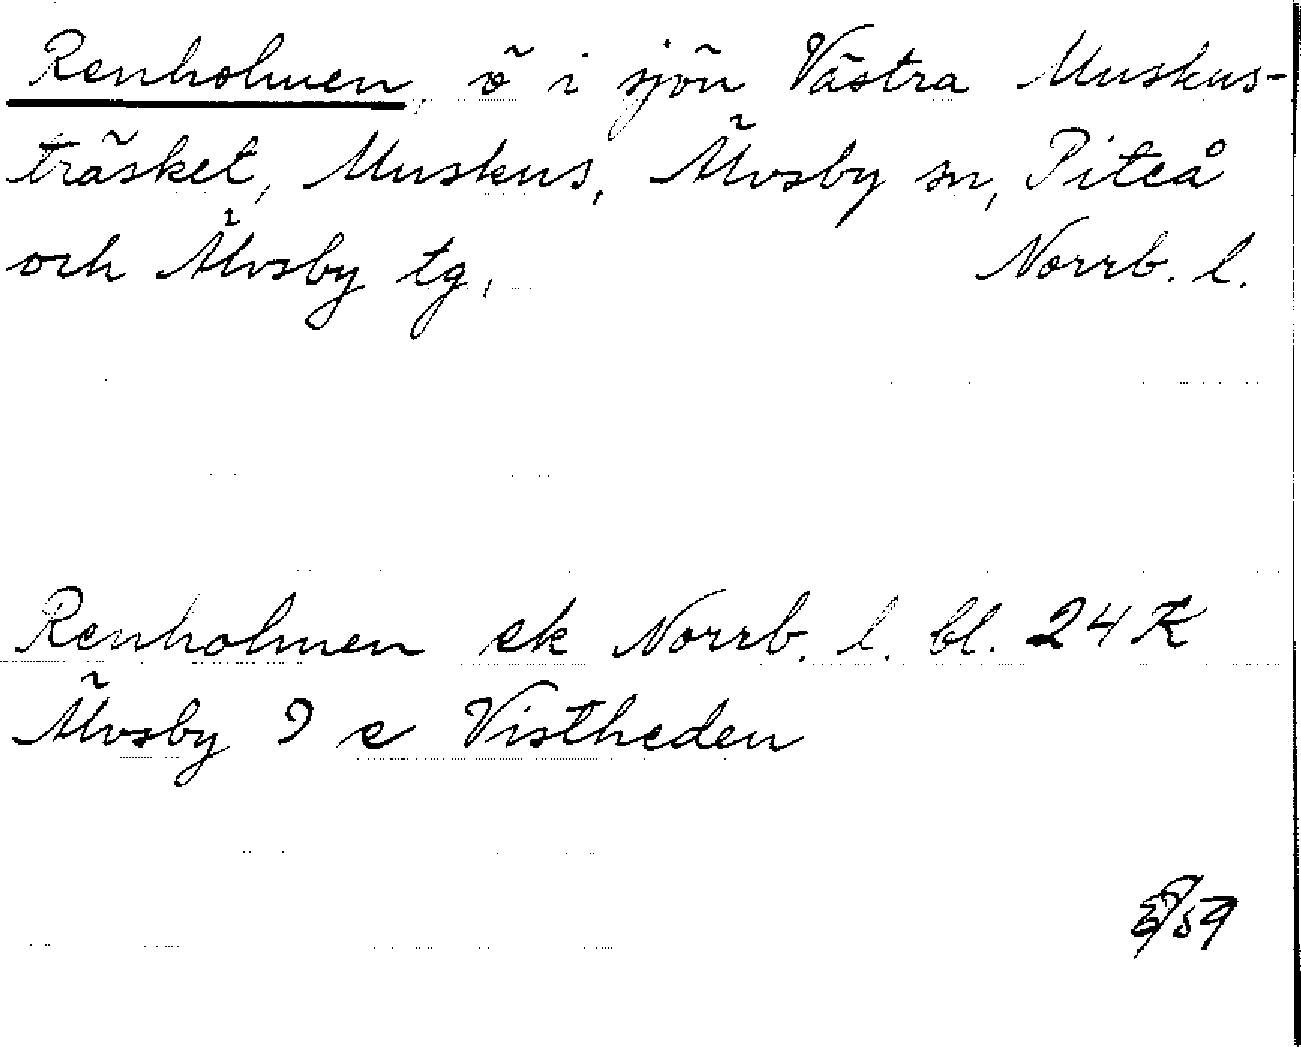 Renholmen, ö i sjön Västra Muskus-
träsket, Muskus, Älvsby sn, Piteå
och Älvsby tg, Norrb. l.
Renholmen ek Norrb. l. bl. 24 K
Älvsby 9 e Vistheden
/59